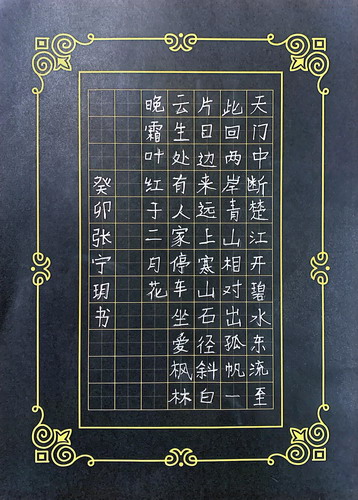 天门中断楚江开碧水东流至
此回两岸青山相对出孤帆一
片日边来远上寒山石径斜白
云生处有人家停车坐爱枫林
晚霜叶红于二月花
癸卯张宁玥书